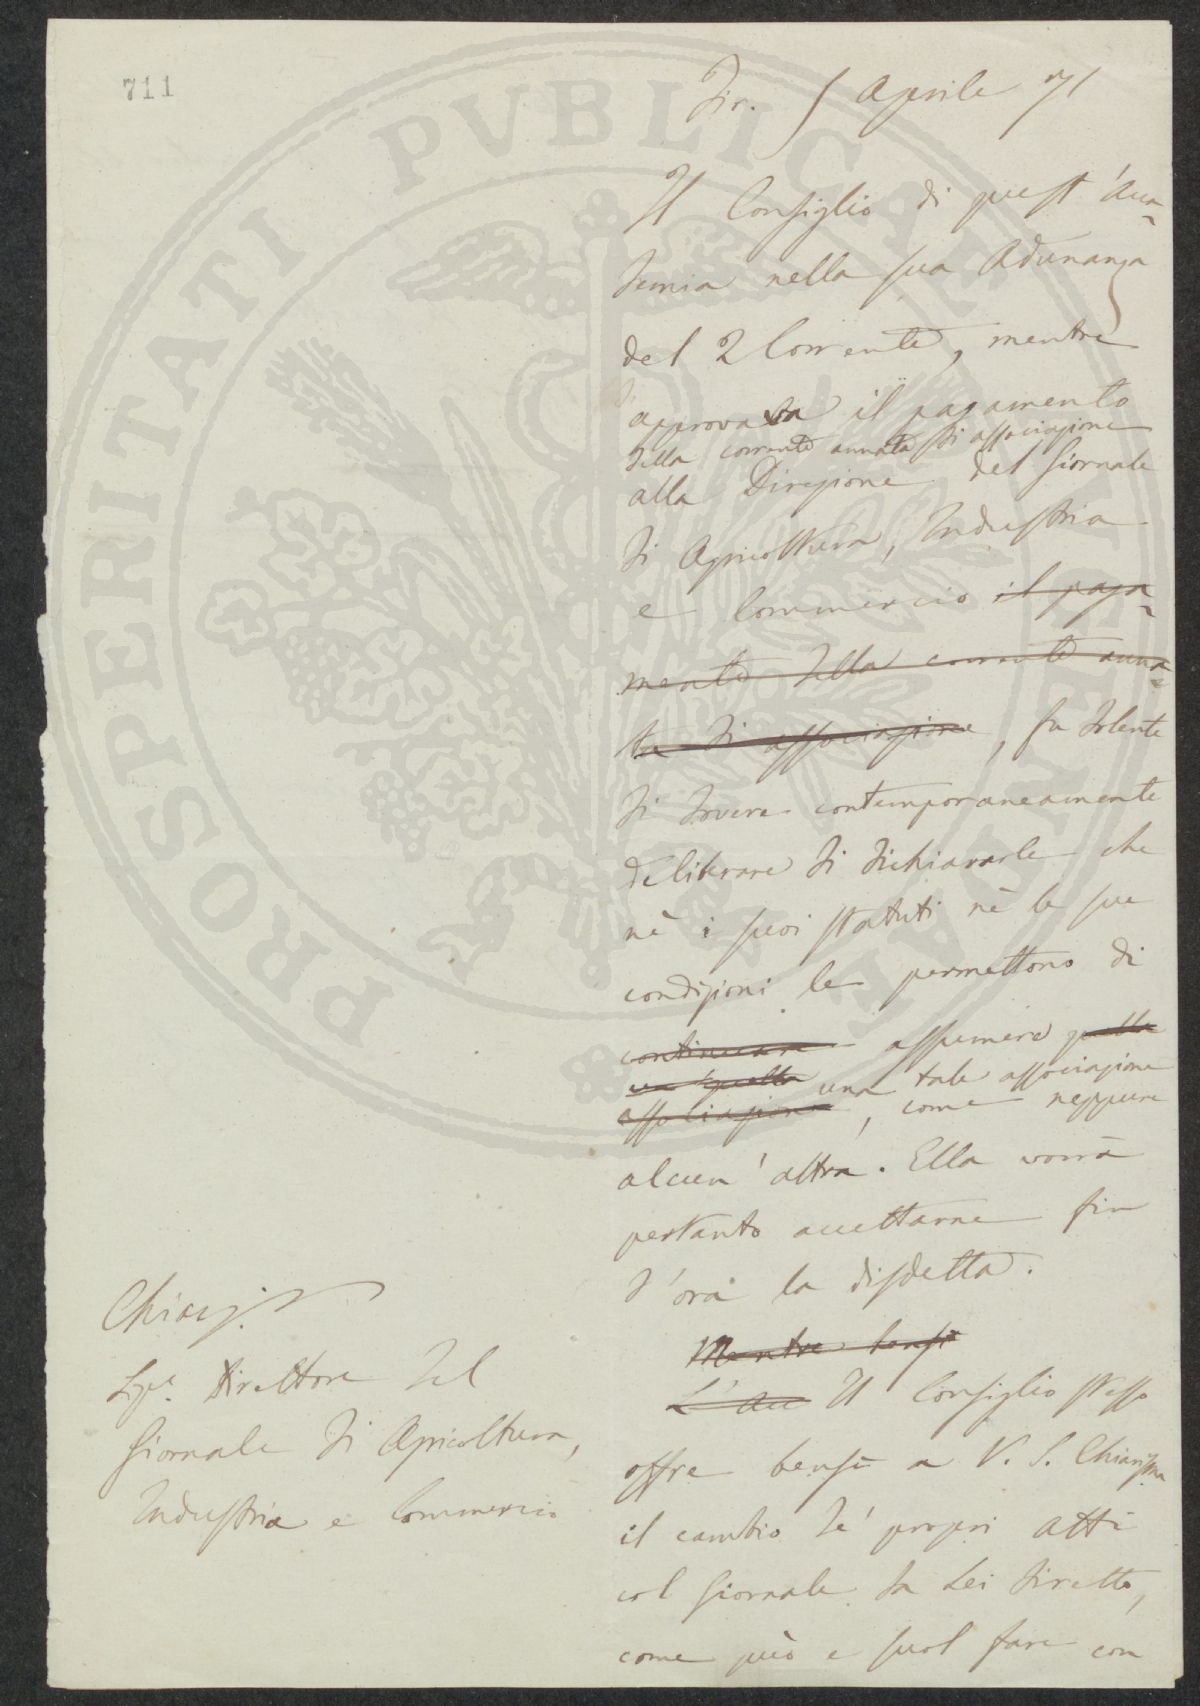 711
Fir. 5 Aprile 71
Il Consiglio di quest'Acca=
demia nella sua Adunanza
del 2 Corrente, mentre
approvava il pagamento
della corrente annata di associazione
alla Direzione del Giornale
di Agricoltura, Industria
e Commercio il paga=
mento della corrente anna=
ta di associazione, fu dolente
di dovere contemporaneamente
deliberare di dichiararle che
nè i suoi statuti nè le sue
condizioni le permettono di
continuare assumere quella
una tale associazione
associazione, come neppure
alcun'altra. Ella vorrà
pertanto accettarne fin
d'ora la disdetta.
Mentre bensì
L'Acc Il Consiglio stesso
offre bensì a V. S. Chiariss.ma
il cambio de' propri Atti
col Giornale da Lei diretto,
come può e suol fare con
Sig.r Direttore del
Giornale di Agricoltura,
Industria e Commercio
PROSPERITATI PVBLICAE AVGENDAE